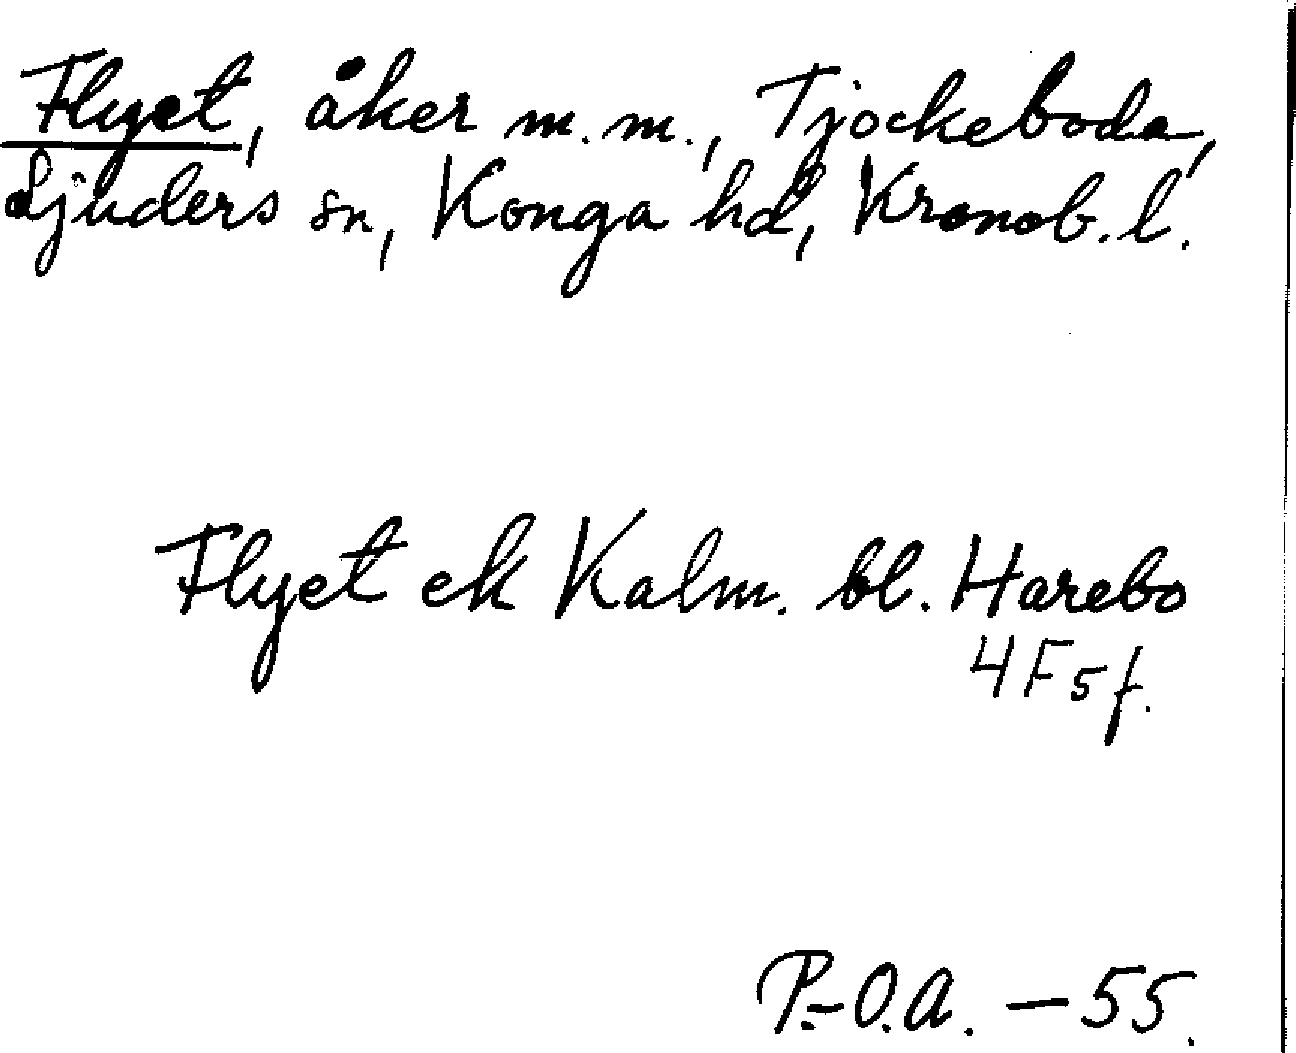 Flyet, åker m.m., Tjockeboda,
Ljuders sn, Konga hd, Kronob. l.
Flyet ek Kalm. bl. Harebo
4F5f.
P.-O.A. - 55.